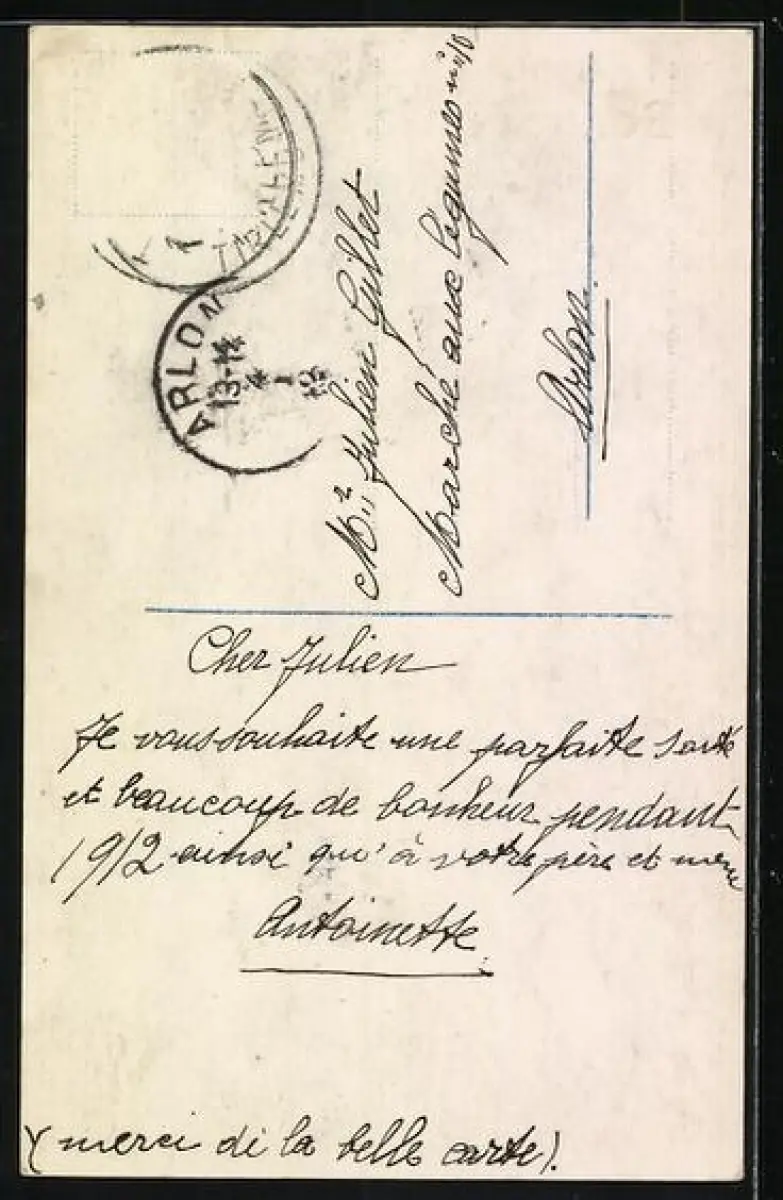 ARLON
13-14
Mr Julien Gillet
Marché aux légumes
Arlon.
Cher Julien
Je vous souhaite une parfaite santé
et beaucoup de bonheur pendant
1912 ainsi qu'à votre père et mère
Antoinette
(merci de la belle carte).